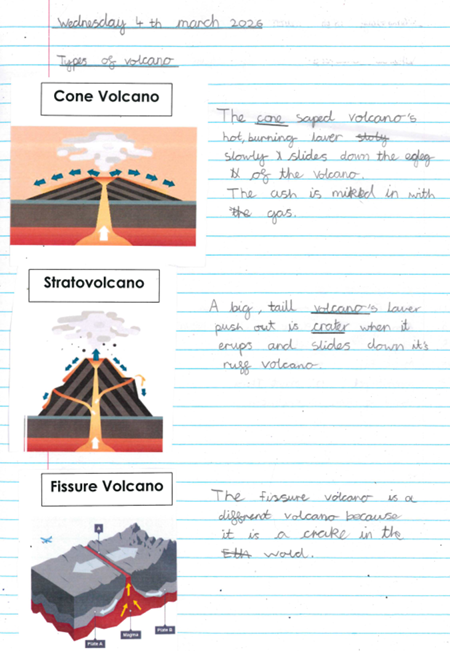 Wednesday 4th march 2026
Types of volcano
Cone Volcano
The cone saped volcano's
hot, burning laver stoly
slowly slides down the edeg
of the volcano.
The ash is mikked in with
the gas.
Stratovolcano
A big, taill volcano's laver
push out is crater when it
erups and slides down it's
ruff volcano.
Fissure Volcano
The fissure volcano is a
diffrent volcano because
it is a crake in the
Eth wold.
Plate A
Magma
Plate B